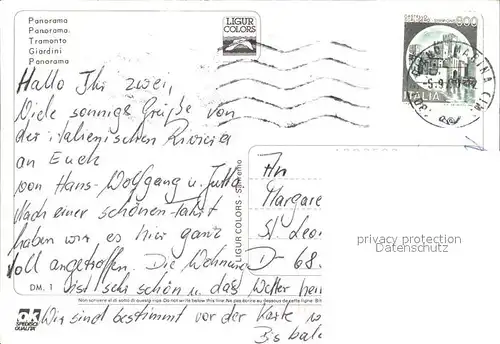 Panorama
Panorama
Tramonto
Giardini
Panorama
LIGUR
COLORS
800
Hallo Ihr zwei,
Viele sonnige Grüße von
der italienischen Riviera
an Euch
von Hans-Wolfgang u. Jutta
Nach einer schönen Fahrt
haben wir es hier ganz
toll angetroffen. Die Wohnung
ist sehr schön u das Wetter
DM. 1
Non scrivere al di sotto di questa riga. Do not write below this line. Ne pas écrire au dessous de cette ligne.
Wir sind bestimmt vor der Karte
Bis
LIGUR COLORS - Sanremo
An
St. Leo
D-68
privacy protection
Datenschutz
ok